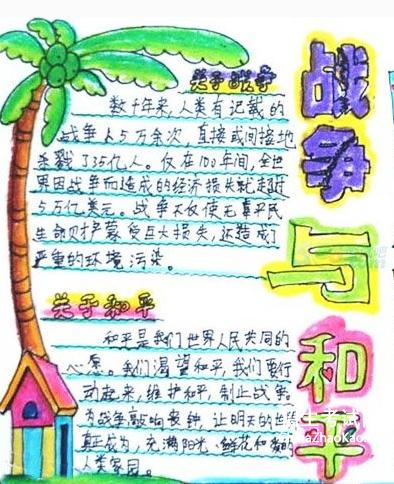 战争与和平
关于战争
数千年来,人类有记载的
战争上5万余次,直接或间接地
杀戮了35亿人。仅在100年间,全世
界因战争而造成的经济损失就超过
5万亿美元。战争不仅使无辜平民
生命财产蒙受巨大损失,还造成了
严重的环境污染。
关于和平
和平是我们世界人民共同的
心愿。我们渴望和平,我们要行
动起来,维护和平,制止战争。
为战争敲响丧钟,让明天的世
真正成为,充满阳光、鲜花和
人类家园。